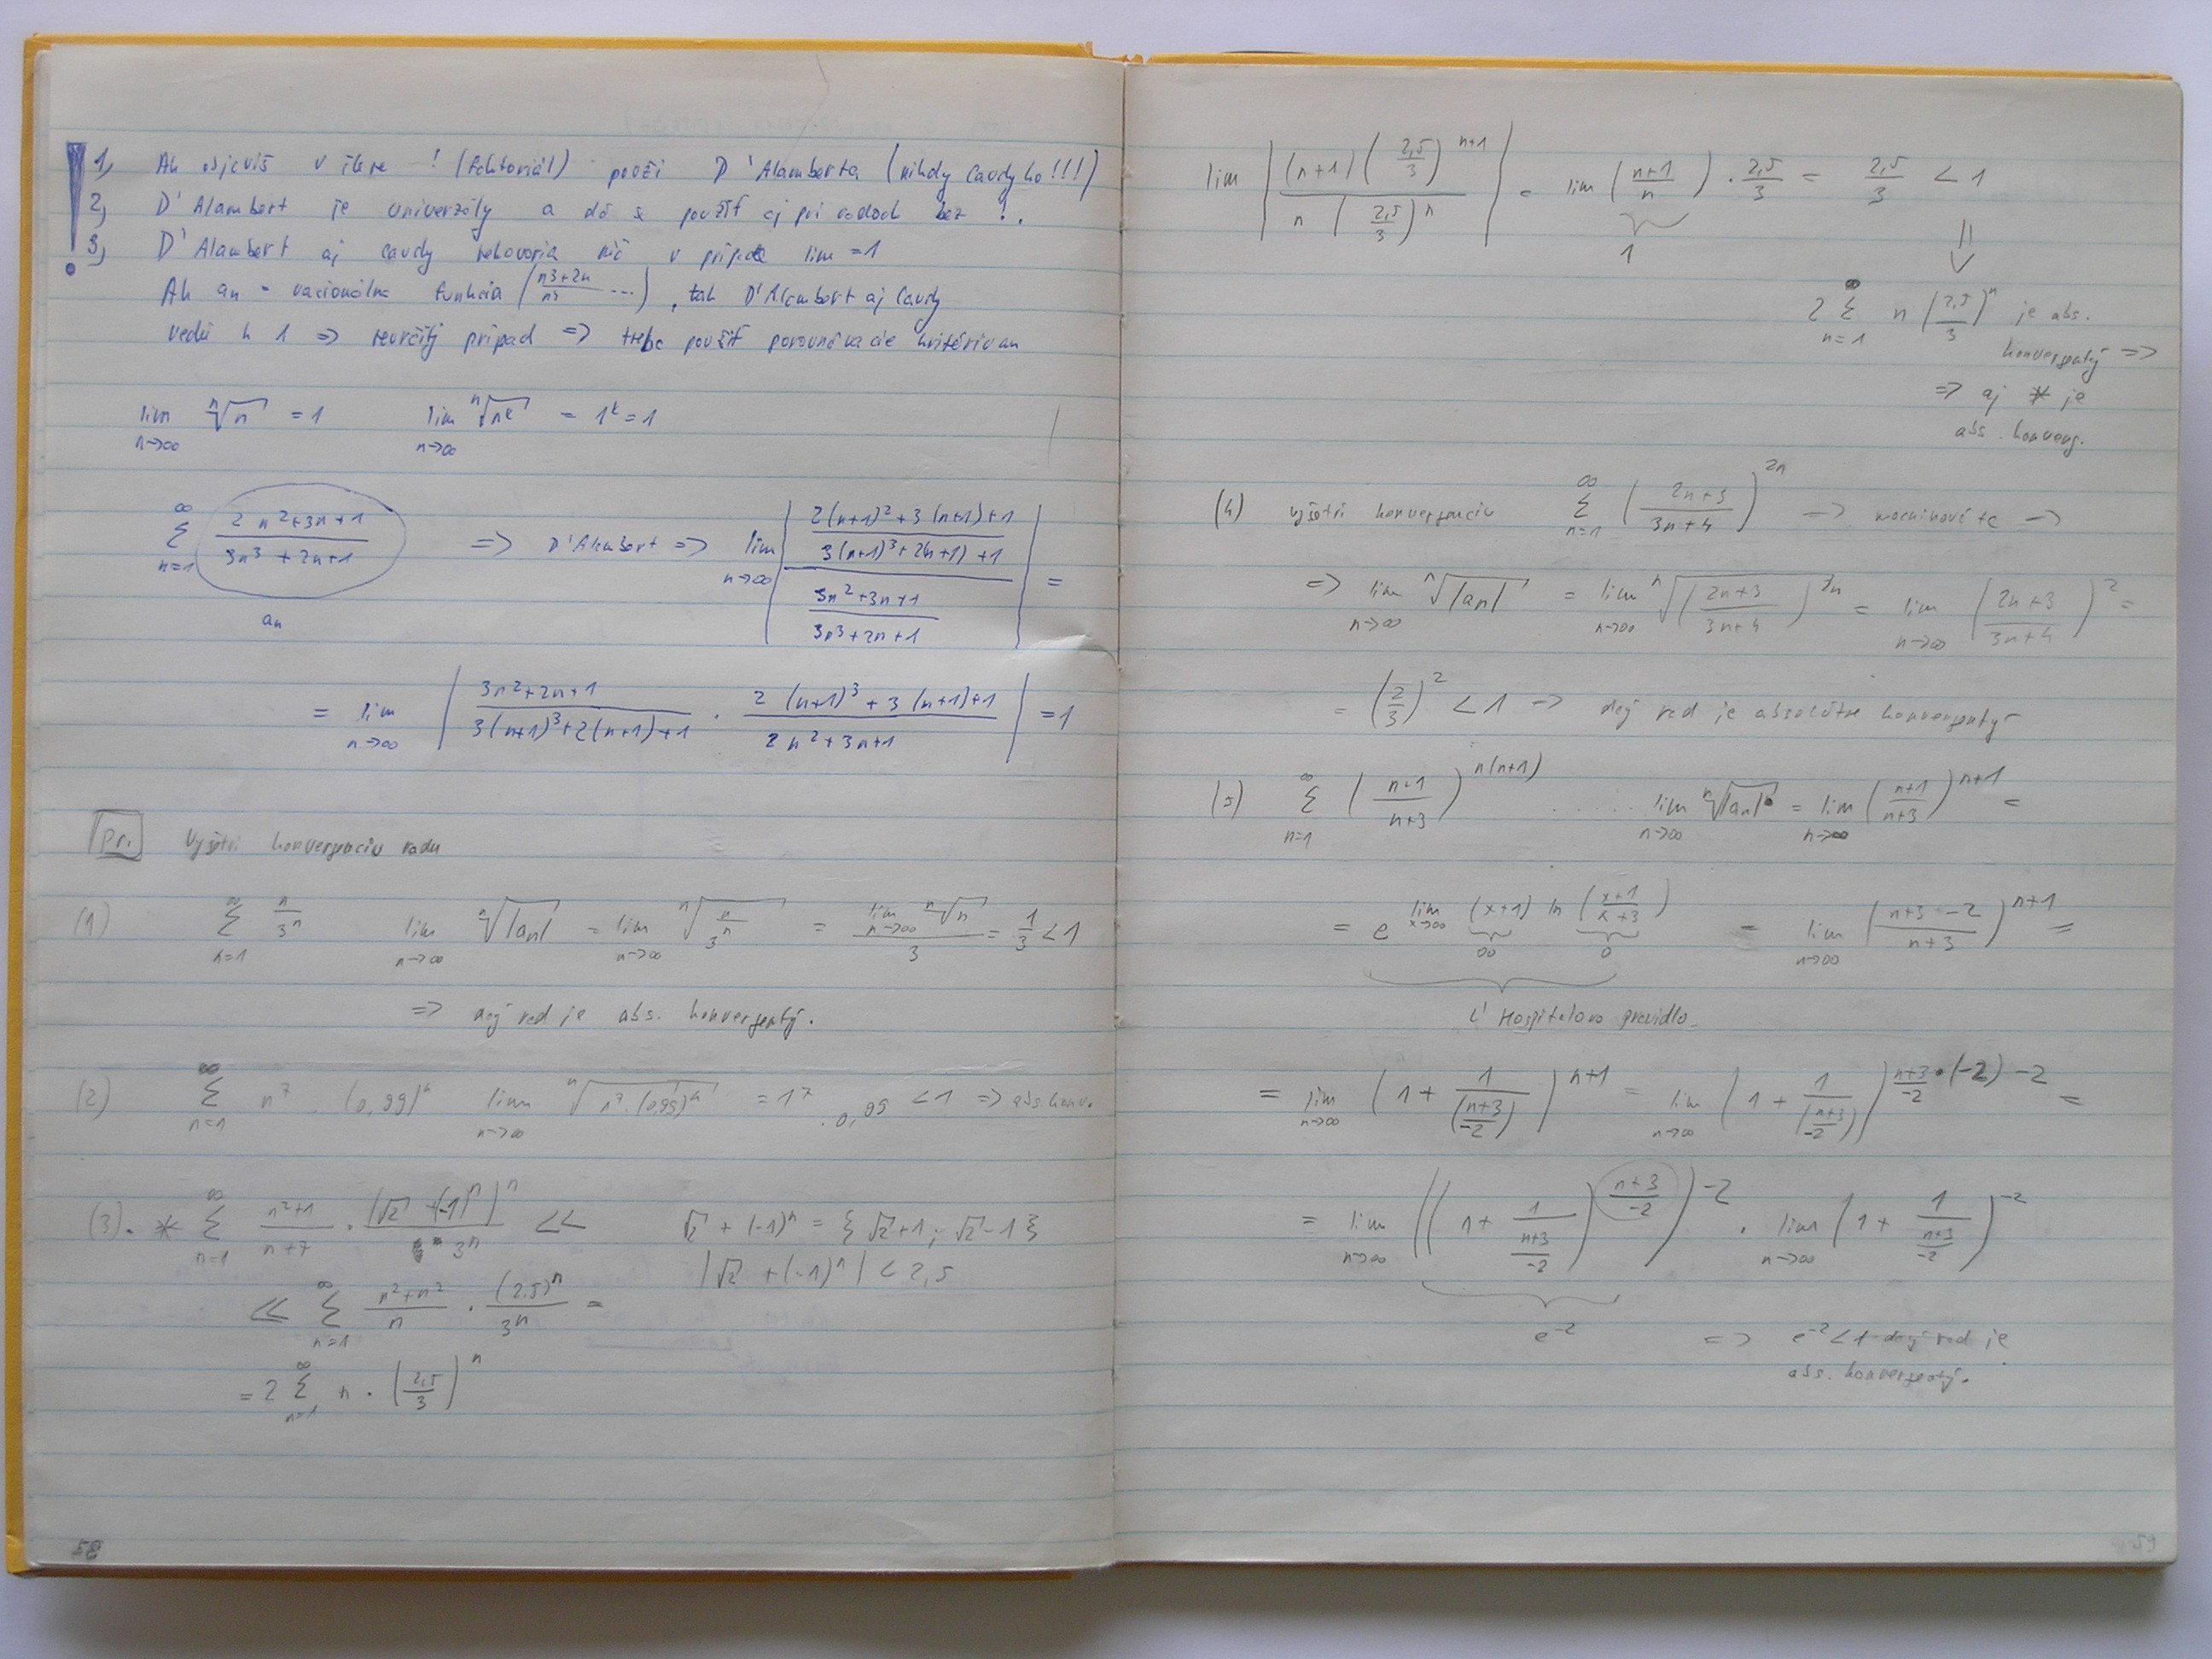 1, Ak objavíš v čitve ! (faktoriál) použi D'Alamberta (nikdy Caudyho!!!)
2, D'Alambert je univerzály a dá s použiť aj pri radoch bez !.
3, D'Alambert aj Caudy nehovoria nič v prípade lim = 1
Ak an - racionálna funkcia (n3+2n/n4 ...), tak D'Alambert aj Caudy
vedú k 1 => neurčitý prípad => treba použiť porovnávacie kritérium
lim n->∞ ⁿ√n = 1 lim n->∞ ⁿ√nᵏ = 1ᵏ = 1
∞ Σ n=1 (2n²+3n+1)/(3n³+2n+1) => D'Alambert => lim n->∞ | ((2(n+1)²+3(n+1)+1)/(3(n+1)³+2(n+1)+1)) / ((3n²+3n+1)/(3n³+2n+1)) | =
an
= lim n->∞ | (3n²+2n+1)/(3(n+1)³+2(n+1)+1) · (2(n+1)³+3(n+1)+1)/(2n²+3n+1) | = 1
Pr. Vyšetri konvergenciu radu
(1) ∞ Σ n=1 n/3ⁿ lim n->∞ ⁿ√|an| = lim n->∞ ⁿ√(n/3ⁿ) = (lim n->∞ ⁿ√n)/3 = 1/3 < 1
=> daný rad je abs. konvergentý.
(2) ∞ Σ n=1 n⁷ . (0,99)ⁿ lim n->∞ ⁿ√(n⁷.(0,99)ⁿ) = 1⁷ . 0,99 < 1 => abs. konv.
(3). * ∞ Σ n=1 (n²+1)/(n+7) · (√2 + (-1)ⁿ)ⁿ/3ⁿ << √2 + (-1)ⁿ = {√2+1 ; √2-1}
|√2 + (-1)ⁿ| < 2,5
<< ∞ Σ n=1 (n²+n²)/n · (2.5)ⁿ/3ⁿ =
= 2 ∞ Σ n=1 n · (2,5/3)ⁿ
58
lim | ((n+1)(2,5/3)ⁿ⁺¹)/(n(2,5/3)ⁿ) | = lim ((n+1)/n) · 2,5/3 = 2,5/3 < 1
1
2 ∞ Σ n=1 n (2,5/3)ⁿ je abs.
konvergentý =>
=> aj * je
abs. konverg.
(4) vyšetri konvergenciu ∞ Σ n=1 ((2n+3)/(3n+4))²ⁿ => mocninové te =>
=> lim n->∞ ⁿ√|an| = lim n->∞ ⁿ√((2n+3)/(3n+4))²ⁿ = lim n->∞ ((2n+3)/(3n+4))² =
= (2/3)² < 1 => daný rad je absolútne konvergentý
(5) ∞ Σ n=1 ((n+1)/(n+3))ⁿ⁽ⁿ⁺¹⁾ ..... lim n->∞ ⁿ√|an| = lim n->∞ ((n+1)/(n+3))ⁿ⁺¹ =
= e^(lim x->∞ (x+1) ln ((x+1)/(x+3))) = lim n->∞ ((n+3-2)/(n+3))ⁿ⁺¹ =
∞ 0
L'Hospitalovo pravidlo
= lim n->∞ (1 + 1/((n+3)/-2))ⁿ⁺¹ = lim n->∞ (1 + 1/((n+3)/-2))^((n+3)/-2 · (-2) -2) =
= lim n->∞ ((1 + 1/((n+3)/-2))^((n+3)/-2))⁻² · lim n->∞ (1 + 1/((n+3)/-2))⁻²
e⁻² => e⁻² < 1 daný rad je
abs. konvergentý.
59